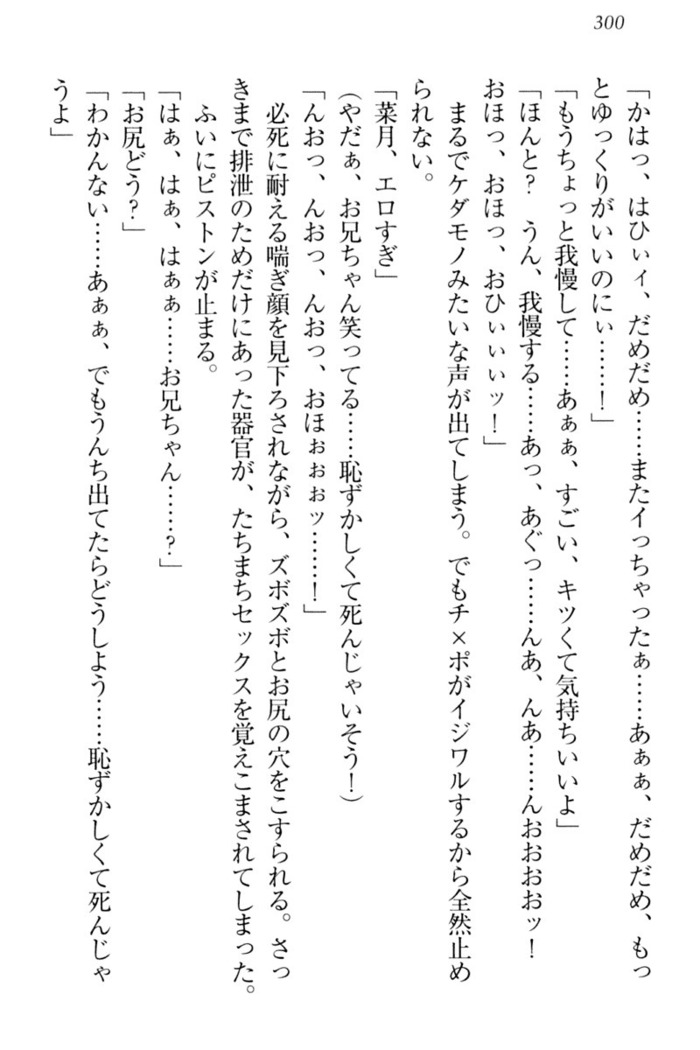 300
「かはっ、はひぃィ、だめだめ……またイっちゃったぁ……あぁぁ、だめだめ、もっ
とゆっくりがいいのにぃ……！」
「もうちょっと我慢して……あぁぁ、すごい、キツくて気持ちいいよ」
「ほんと？　うん、我慢する……あっ、あぐっ……んあ、んあ……んおおおおッ！
おほっ、おほっ、おひぃぃぃッ！」
　まるでケダモノみたいな声が出てしまう。でもチ×ポがイジワルするから全然止め
られない。
「菜月、エロすぎ」
（やだぁ、お兄ちゃん笑ってる……恥ずかしくて死んじゃいそう！）
「んおっ、んおっ、んおっ、おほぉぉぉッ……！」
　必死に耐える喘ぎ顔を見下ろされながら、ズボズボとお尻の穴をこすられる。さっ
きまで排泄のためだけにあった器官が、たちまちセックスを覚えこまされてしまった。
　ふいにピストンが止まる。
「はぁ、はぁ、はぁぁ……お兄ちゃん……？」
「お尻どう？」
「わかんない……あぁぁ、でもうんち出てたらどうしよう……恥ずかしくて死んじゃ
うよ」